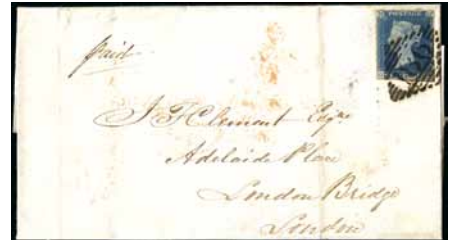 POSTAGE
paid
J F Clemont Esqre
Adelaide Place
London Bridge
London